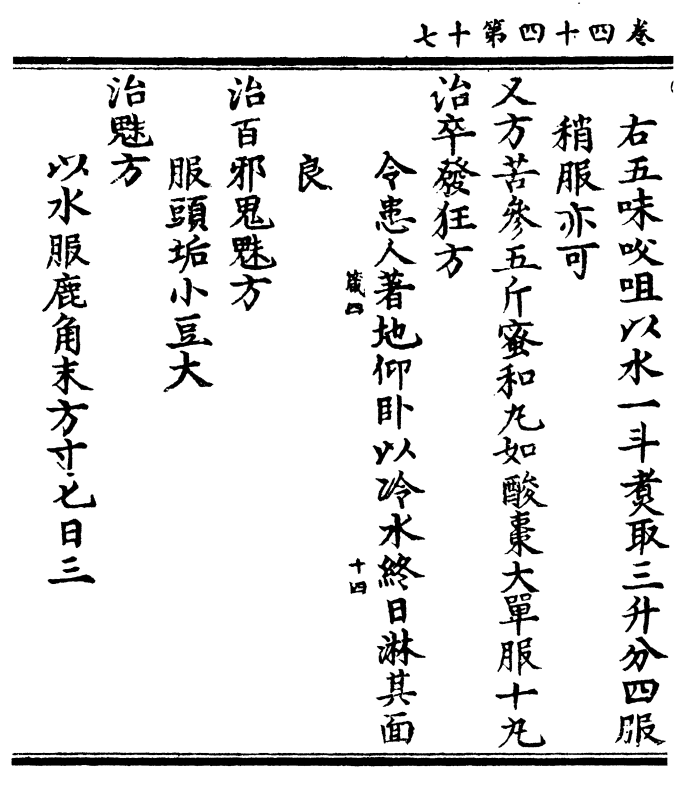 卷四十四第十七
右五味㕮咀以水一斗煑取三升分四服
稍服亦可
又方苦參五斤蜜和丸如酸棗大單服十丸
治卒發狂方
令患人著地仰卧以冷水終日淋其面
良
箴四
十四
治百邪鬼魅方
服頭垢小豆大
治魅方
以水服鹿角末方寸匕日三